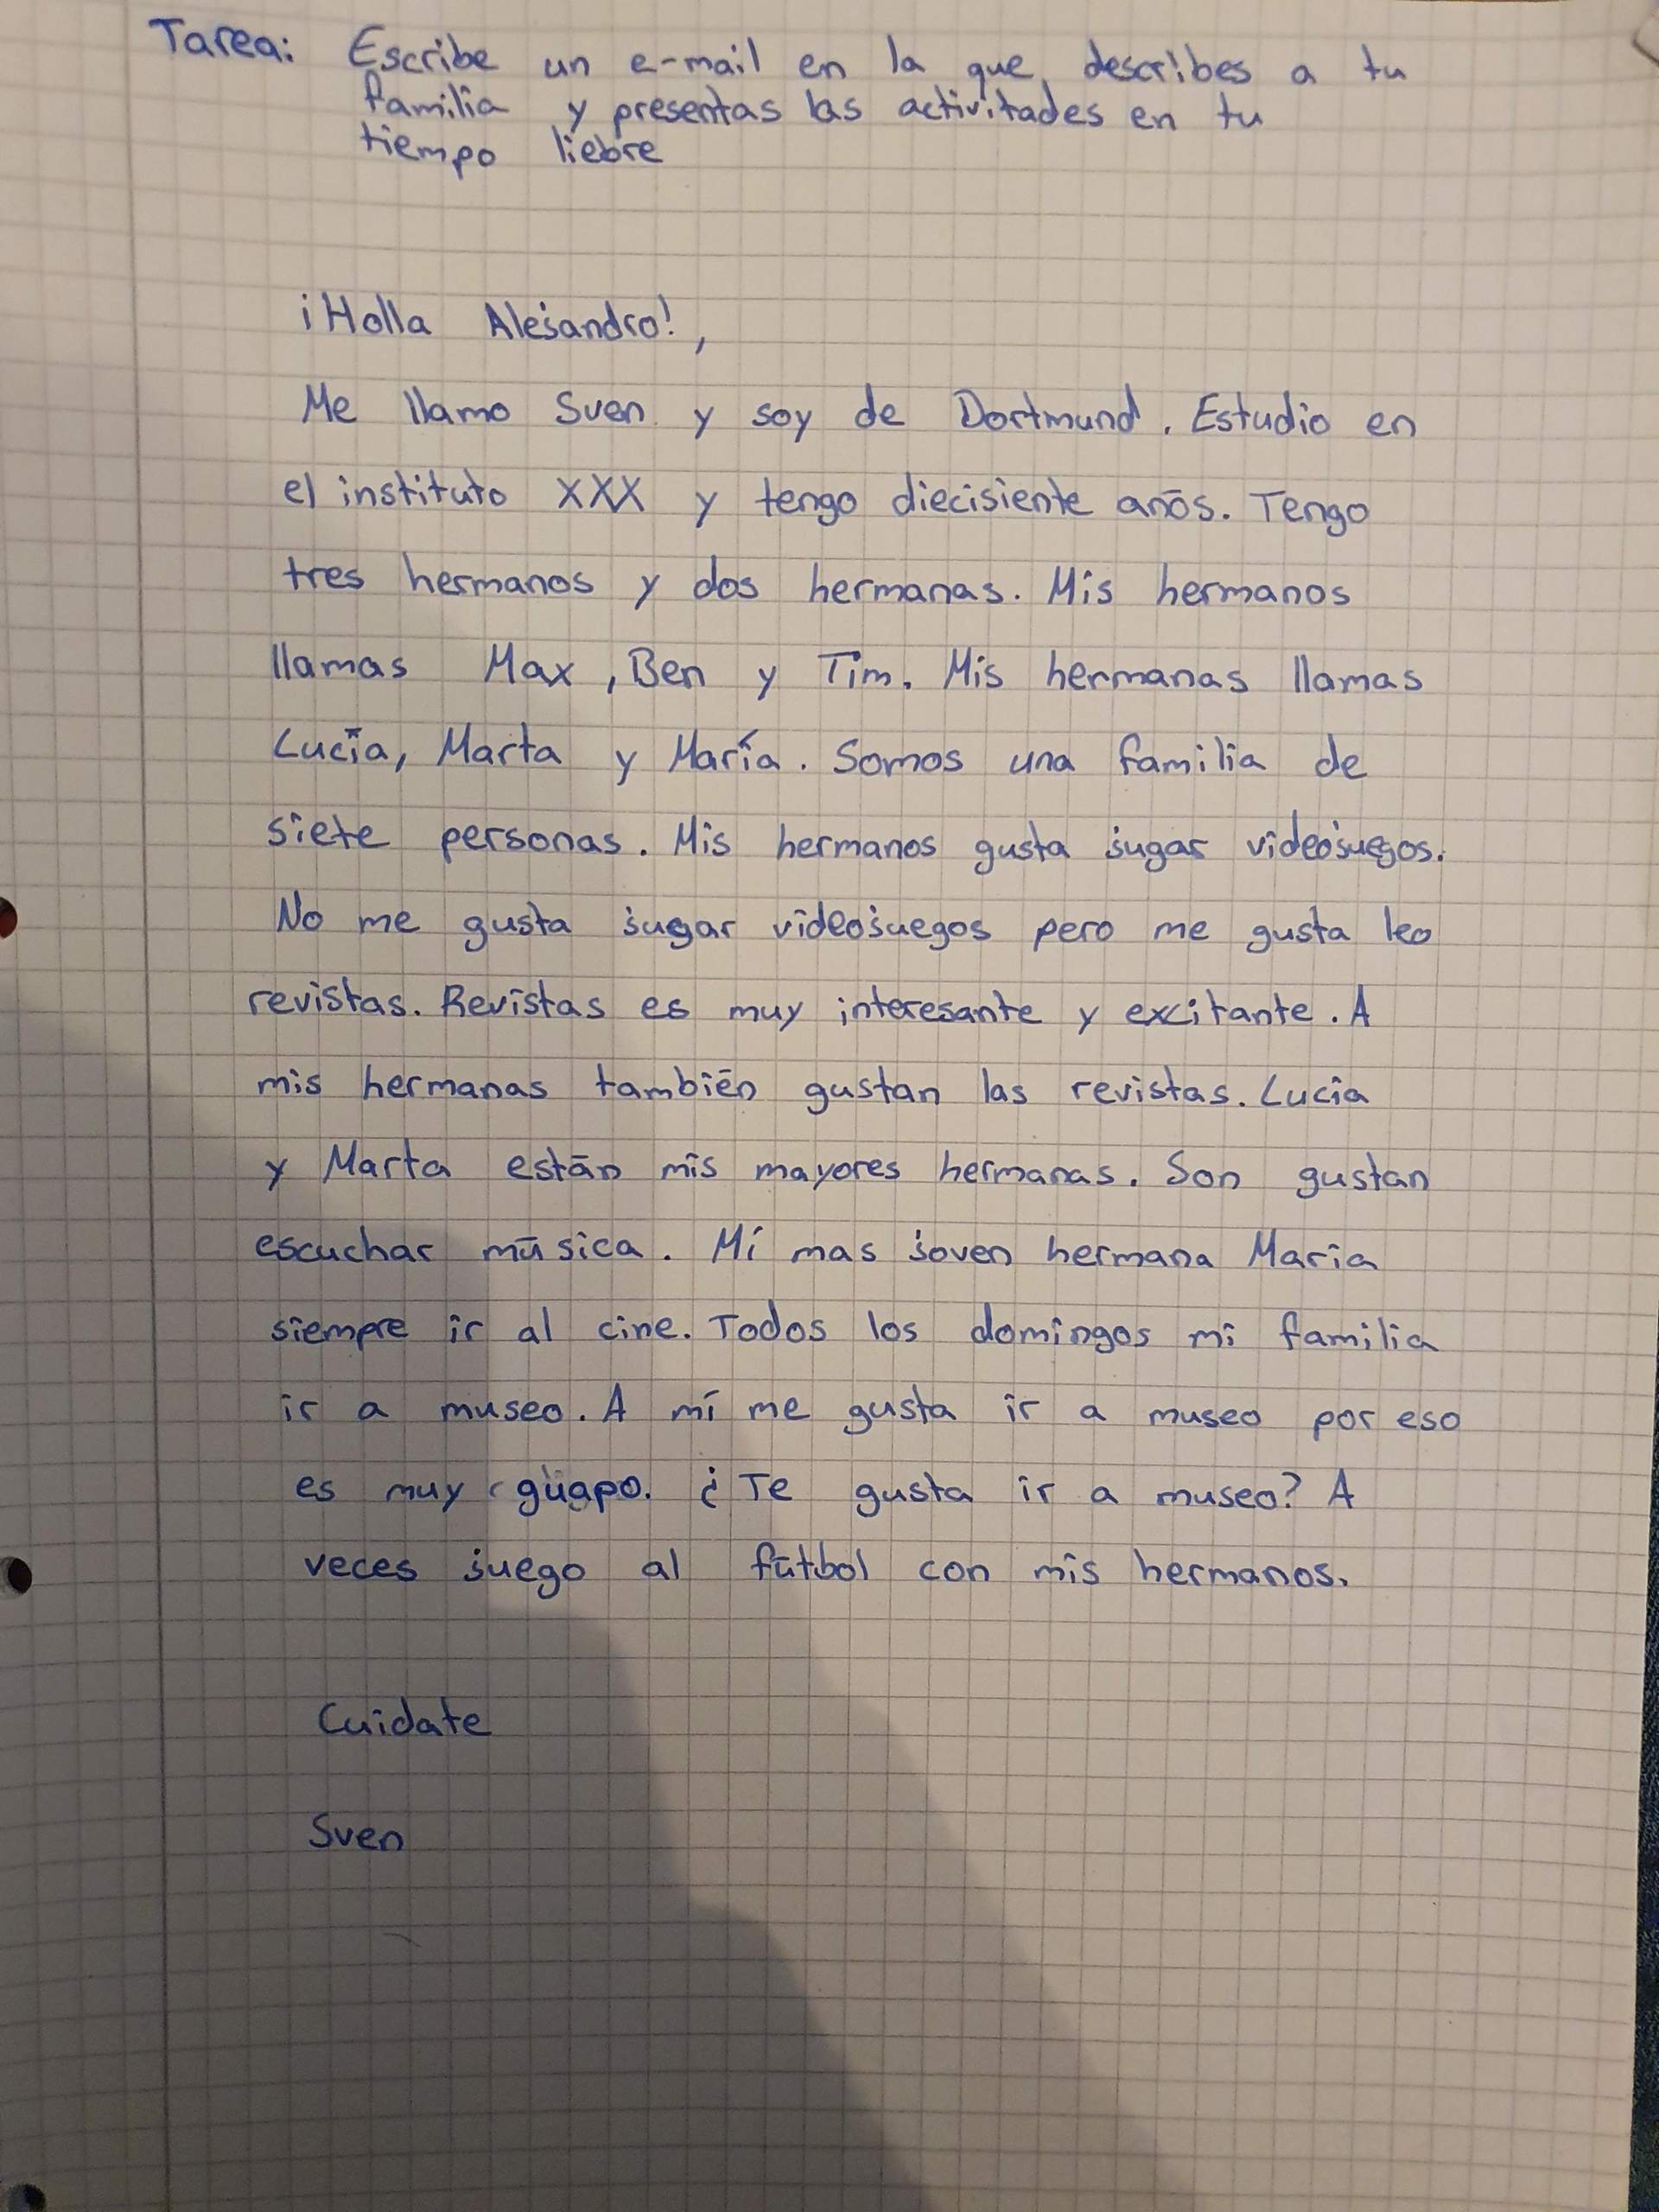 Tarea: Escribe un e-mail en la que describes a tu
familia y presentas las activitades en tu
tiempo liebre
¡Holla Alejandro!,
Me llamo Sven y soy de Dortmund. Estudio en
el instituto XXX y tengo diecisiente anōs. Tengo
tres hermanos y dos hermanas. Mis hermanos
llamas Max, Ben y Tim. Mis hermanas llamas
Lucīa, Marta y María. Somos una familia de
siete personas. Mis hermanos gusta jugar videojuegos.
No me gusta jugar videojuegos pero me gusta leo
revistas. Revistas es muy interesante y excitante. A
mis hermanas tambiēn gustan las revistas. Lucia
y Marta estān mis mayores hermanas. Son gustan
escuchar mūsica. Mí mas joven hermana Maria
siempre ir al cine. Todos los domingos mi familia
ir a museo. A mí me gusta ir a museo por eso
es muy güapo. ¿Te gusta ir a museo? A
veces juego al fūtbol con mis hermanos.
Cuidate
Sven